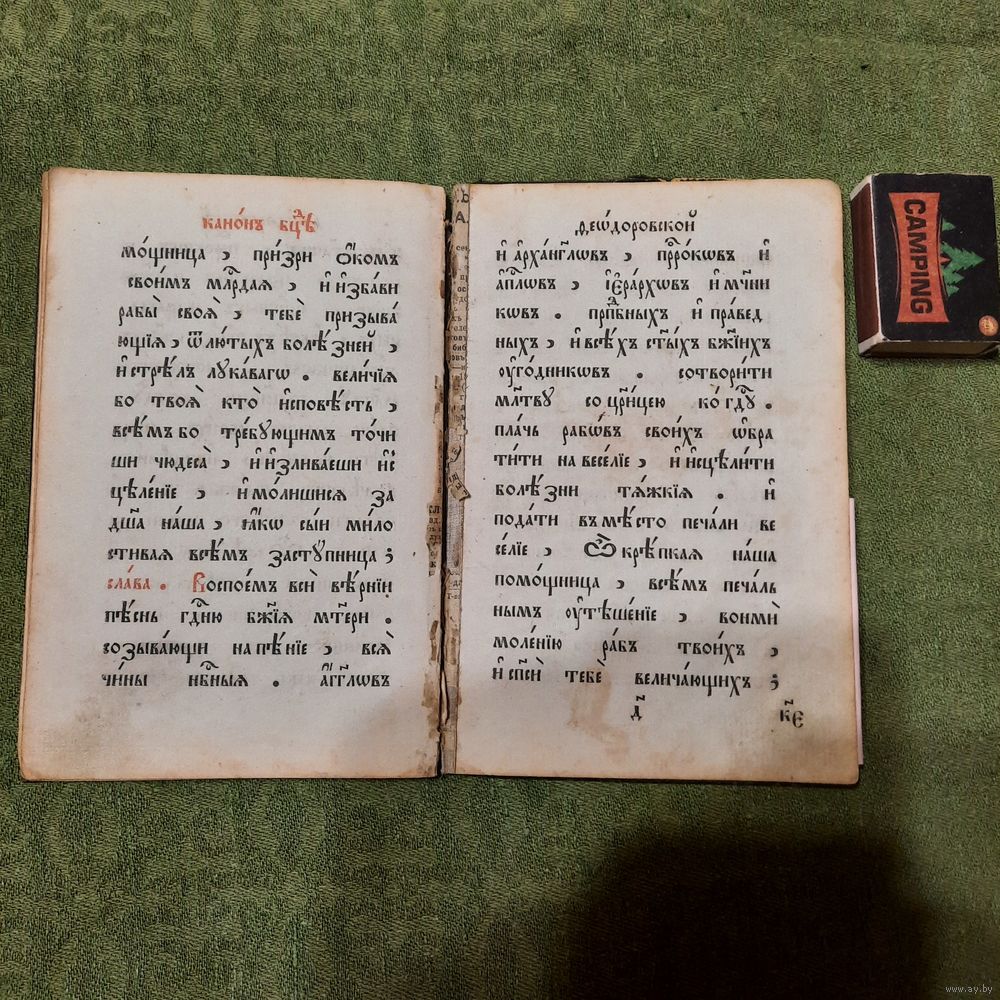 канѡ́нъ бцⷣѣ
мо́щница , при́зри ѻ҆́комъ
свои́мъ млⷭ҇рдая , и҆ и҆зба́ви
рабы̀ своѧ̀ , тебѐ призыва́
ющїѧ , ѿ лю́тыхъ болѣ́зней ,
и҆ стрѣ́лъ лука́вагѡ . вели́чїѧ
бо твоѧ̀ кто̀ и҆сповѣ́сть ,
всѣ́мъ бо тре́бующимъ то́чи
ши чюдеса̀ , и҆ и҆злива́еши и҆с
цѣле́нїе , и҆ мо́лишисѧ за
дш҃а на́ша , ꙗ҆́кѡ сы́и ми́ло
стиваѧ всѣ́мъ засту́пница ;
сла́ва . Воспое́мъ всѝ вѣ́рнїи
пѣ́снь гдⷭ҇ню бж҃їѧ мт҃ери .
созыва́ющи на пѣ́нїе , всѧ̀
чи́ны нбⷭ҇ныѧ . а҆́гг҃лѡвъ
ѳеѡ́доровской
и҆ а҆рха́нг҃лѡвъ , прⷪ҇ро́кѡвъ и҆
а҆пⷭ҇лѡвъ , і҆ера́рхѡвъ и҆ мч҃ни
кѡвъ . прпⷣбныхъ и҆ пра́вед
ныхъ , и҆ всѣ́хъ ст҃ы́хъ бж҃їихъ
ᲂу҆го́дникѡвъ . сотвори́ти
мл҃тву со цр҃и́цею ко́ гдⷭ҇у .
пла́чь рабѡ́въ свои́хъ ѡ҆бра
ти́ти на весе́лїе , и҆ и҆сцѣли́ти
болѣ́зни тѧ́жкїѧ . и҆
пода́ти въ мѣ́сто печа́ли ве
се́лїе , Ѽ крѣ́пкаѧ на́ша
помо́щница , всѣ́мъ печа́ль
нымъ ᲂу҆тѣше́нїе , вонмѝ
моле́нїю ра́бъ твои́хъ ,
и҆ спⷭ҇сѝ тебѐ велича́ющихъ ;
д҃ к҃є
CAMPING
www.ay.by